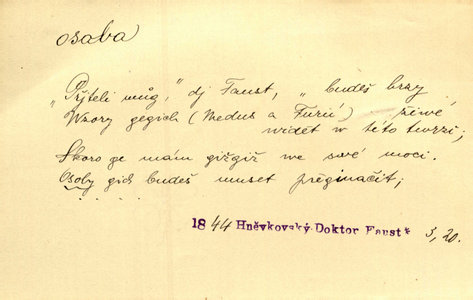 osoba
„Přjteli můg," dj Faust, „budeš brzy
Wzory gegich (Medus a Furií) žiwé
widět w této twrzi;
Skoro ge mám gižgiž we swé moci.
Osoby gich budeš muset přeginačit;
. . . . .
1844 Hněvkovský-Doktor Faust 3, 20.